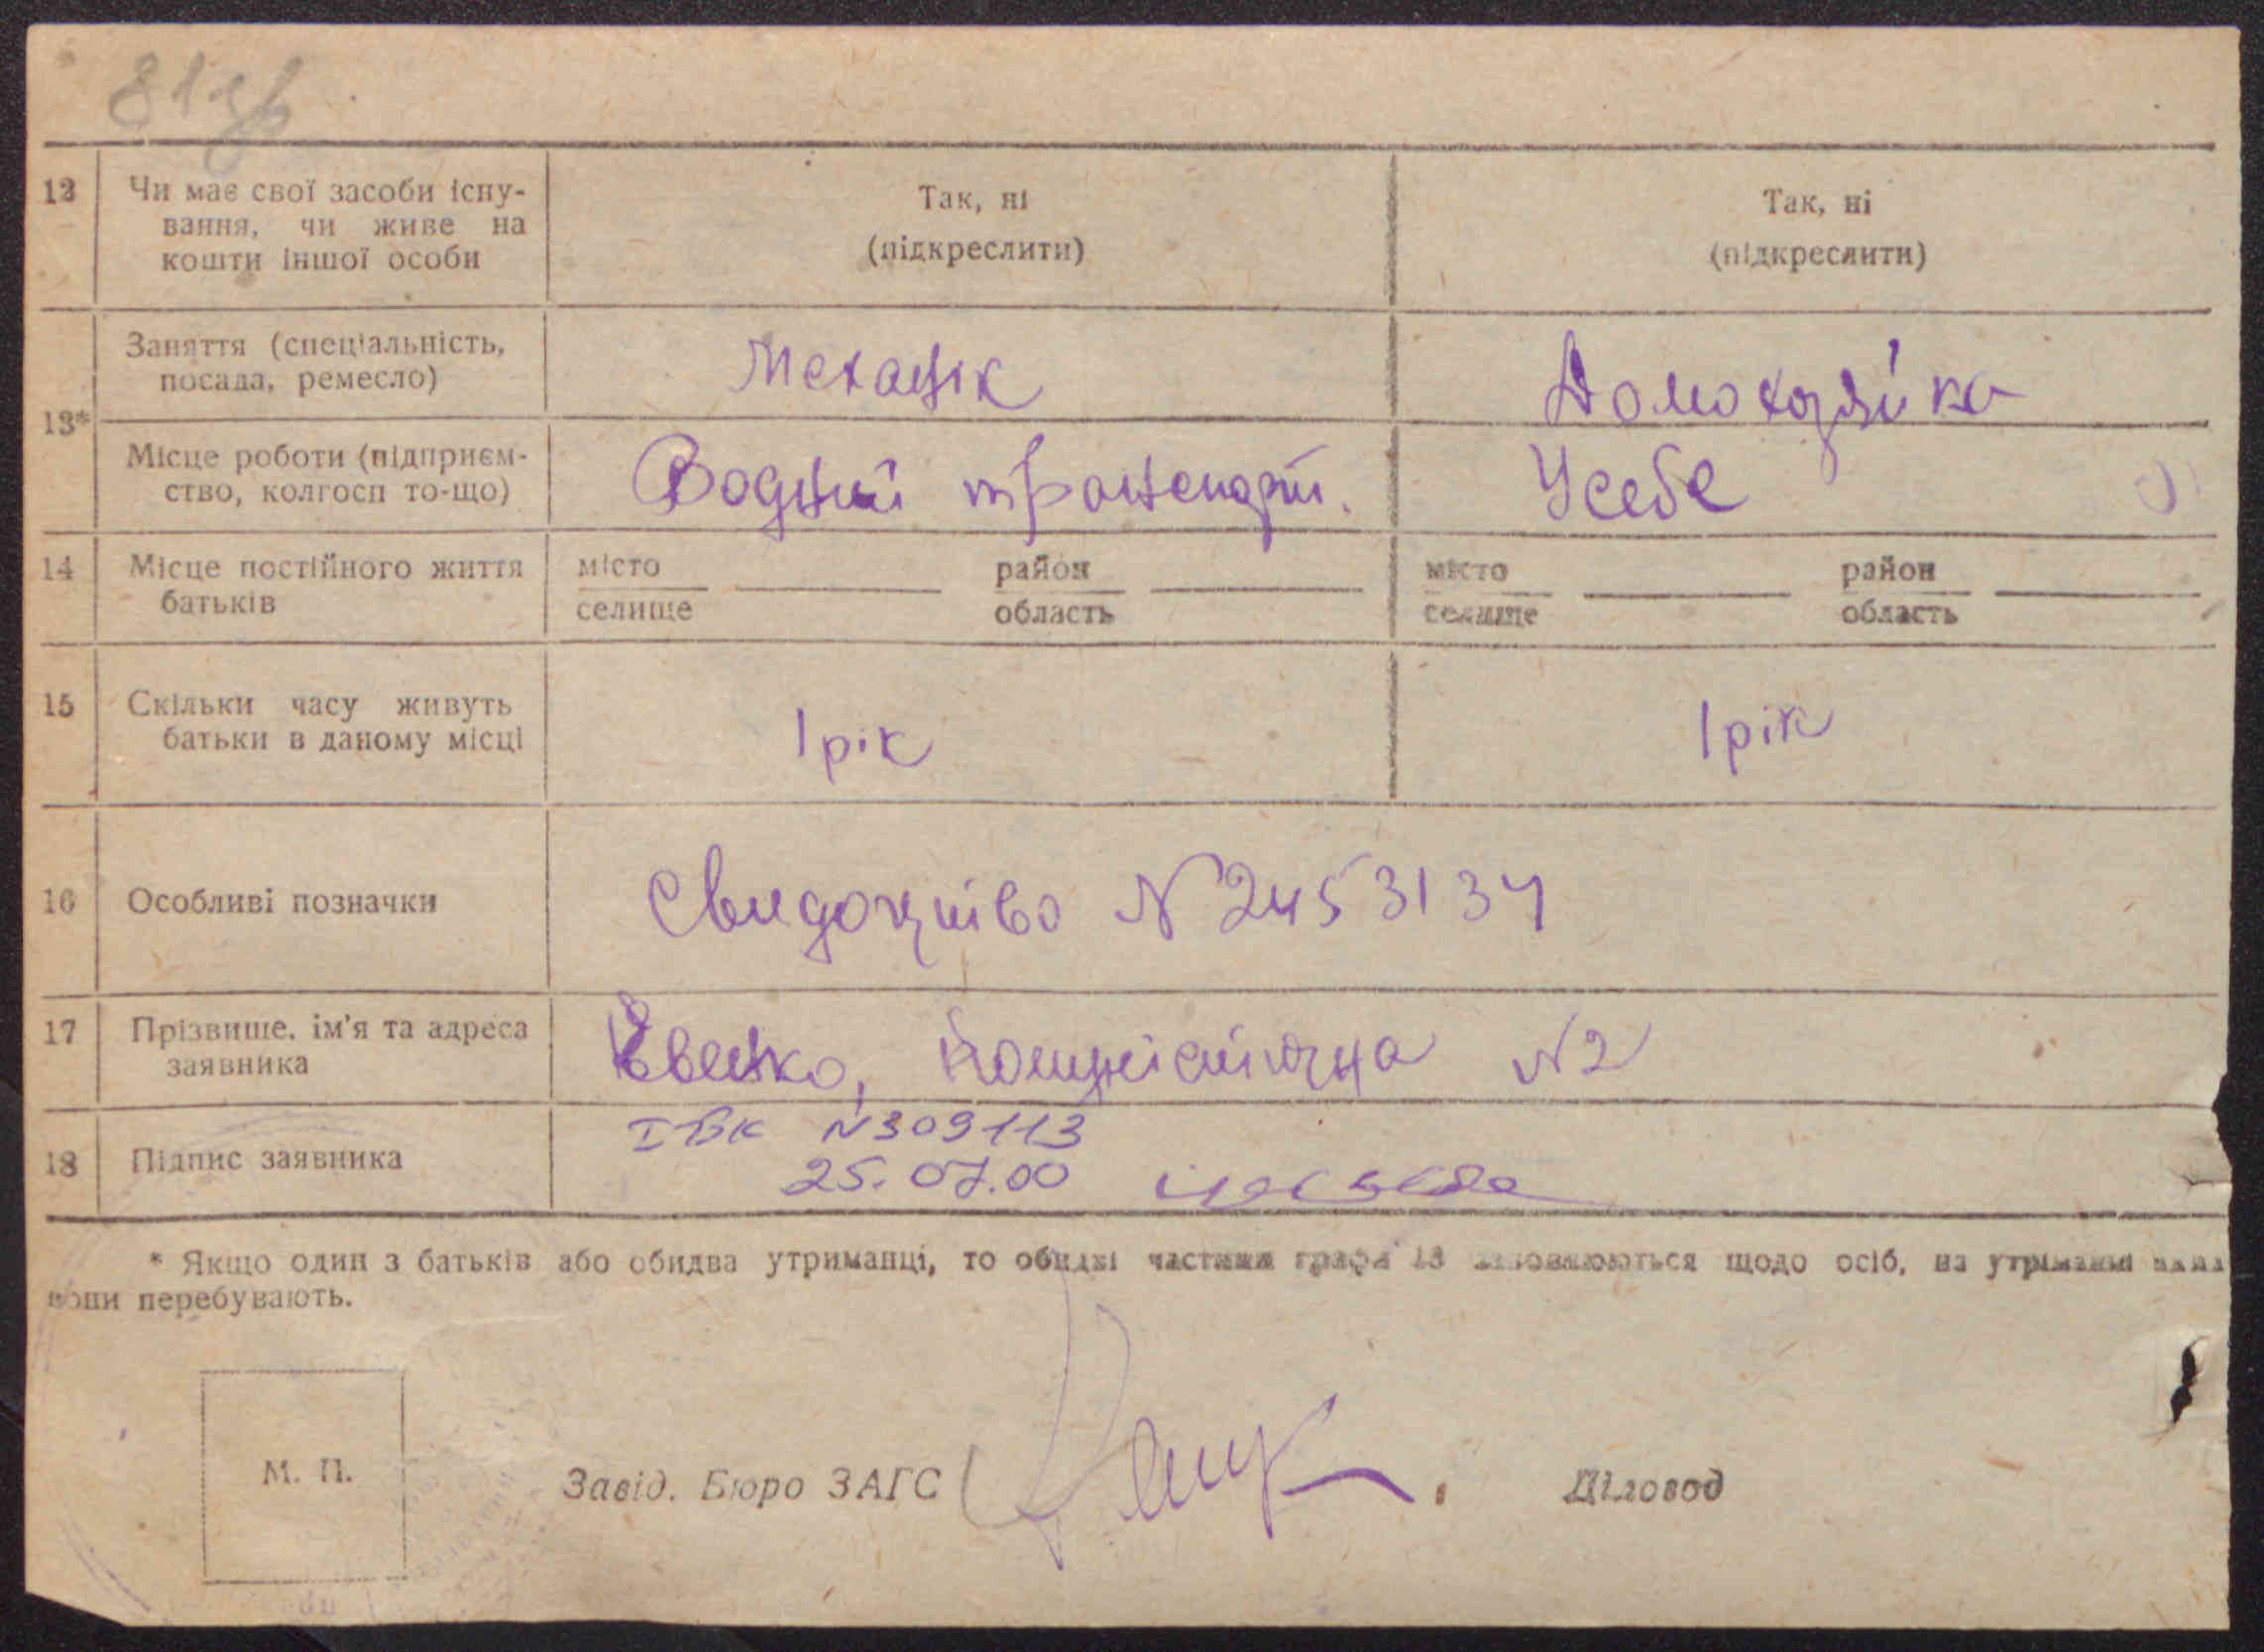 81зв
12 Чи має свої засоби існу-
вання, чи живе на
кошти іншої особи
Так, ні
(підкреслити)
Так, ні
(підкреслити)
13*
Заняття (спеціальність,
посада, ремесло)
Механік
Домохозяйка
Місце роботи (підприєм-
ство, колгосп то-що)
Водний транспорт.
У себе
14 Місце постійного життя
батьків
місто
селище
район
область
місто
селище
район
область
15 Скільки часу живуть
батьки в даному місці
1 рік
1 рік
16 Особливі позначки
Свидоцтво N 2453134
17 Прізвище, ім'я та адреса
заявника
Євенко, Комуністична N2
18 Підпис заявника
І-ВК N309113
25.07.00
* Якщо один з батьків або обидва утриманці, то обидві частини графи 13 заповнюються щодо осіб, на утриманні яких
вони перебувають.
М. П.
Завід. Бюро ЗАГС
Діловод